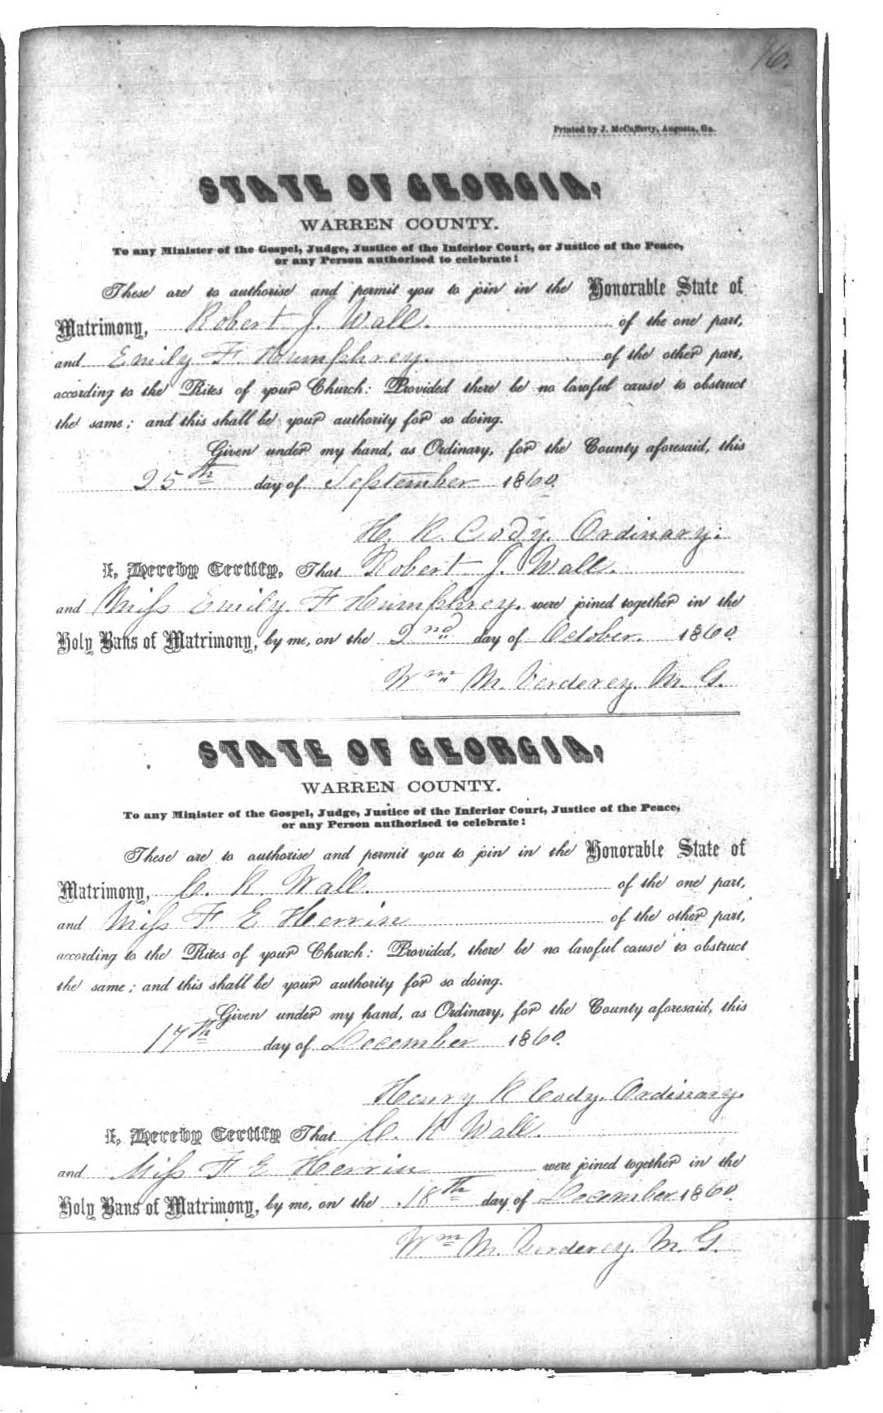 76.
Printed by J. McCafferty, Augusta, Ga.
STATE OF GEORGIA,
WARREN COUNTY.
To any Minister of the Gospel, Judge, Justice of the Inferior Court, or Justice of the Peace,
or any Person authorised to celebrate:
These are to authorise and permit you to join in the Honorable State of
Matrimony, Robert J. Wall. of the one part,
and Emily F. Humphrey. of the other part,
according to the Rites of your Church: Provided there be no lawful cause to obstruct
the same; and this shall be your authority for so doing.
Given under my hand, as Ordinary, for the County aforesaid, this
25th day of September 1860
H. R. Cody. Ordinary.
I, Hereby Certify, That Robert J. Wall.
and Miss Emily F Humphrey. were joined together in the
Holy Bans of Matrimony, by me, on the 2nd day of October. 1860.
Wm M. Verderey. M. G.
STATE OF GEORGIA,
WARREN COUNTY.
To any Minister of the Gospel, Judge, Justice of the Inferior Court, Justice of the Peace,
or any Person authorised to celebrate:
These are to authorise and permit you to join in the Honorable State of
Matrimony, C. R. Wall. of the one part,
and Miss F E Herrin of the other part,
according to the Rites of your Church: Provided, there be no lawful cause to obstruct
the same; and this shall be your authority for so doing.
Given under my hand, as Ordinary, for the County aforesaid, this
17th day of December 1860.
Henry R Cody. Ordinary.
I, Hereby Certify That C. R Wall.
and Miss F E Herrin were joined together in the
Holy Bans of Matrimony, by me, on the 18th day of December 1860.
Wm M. Verderey. M. G.